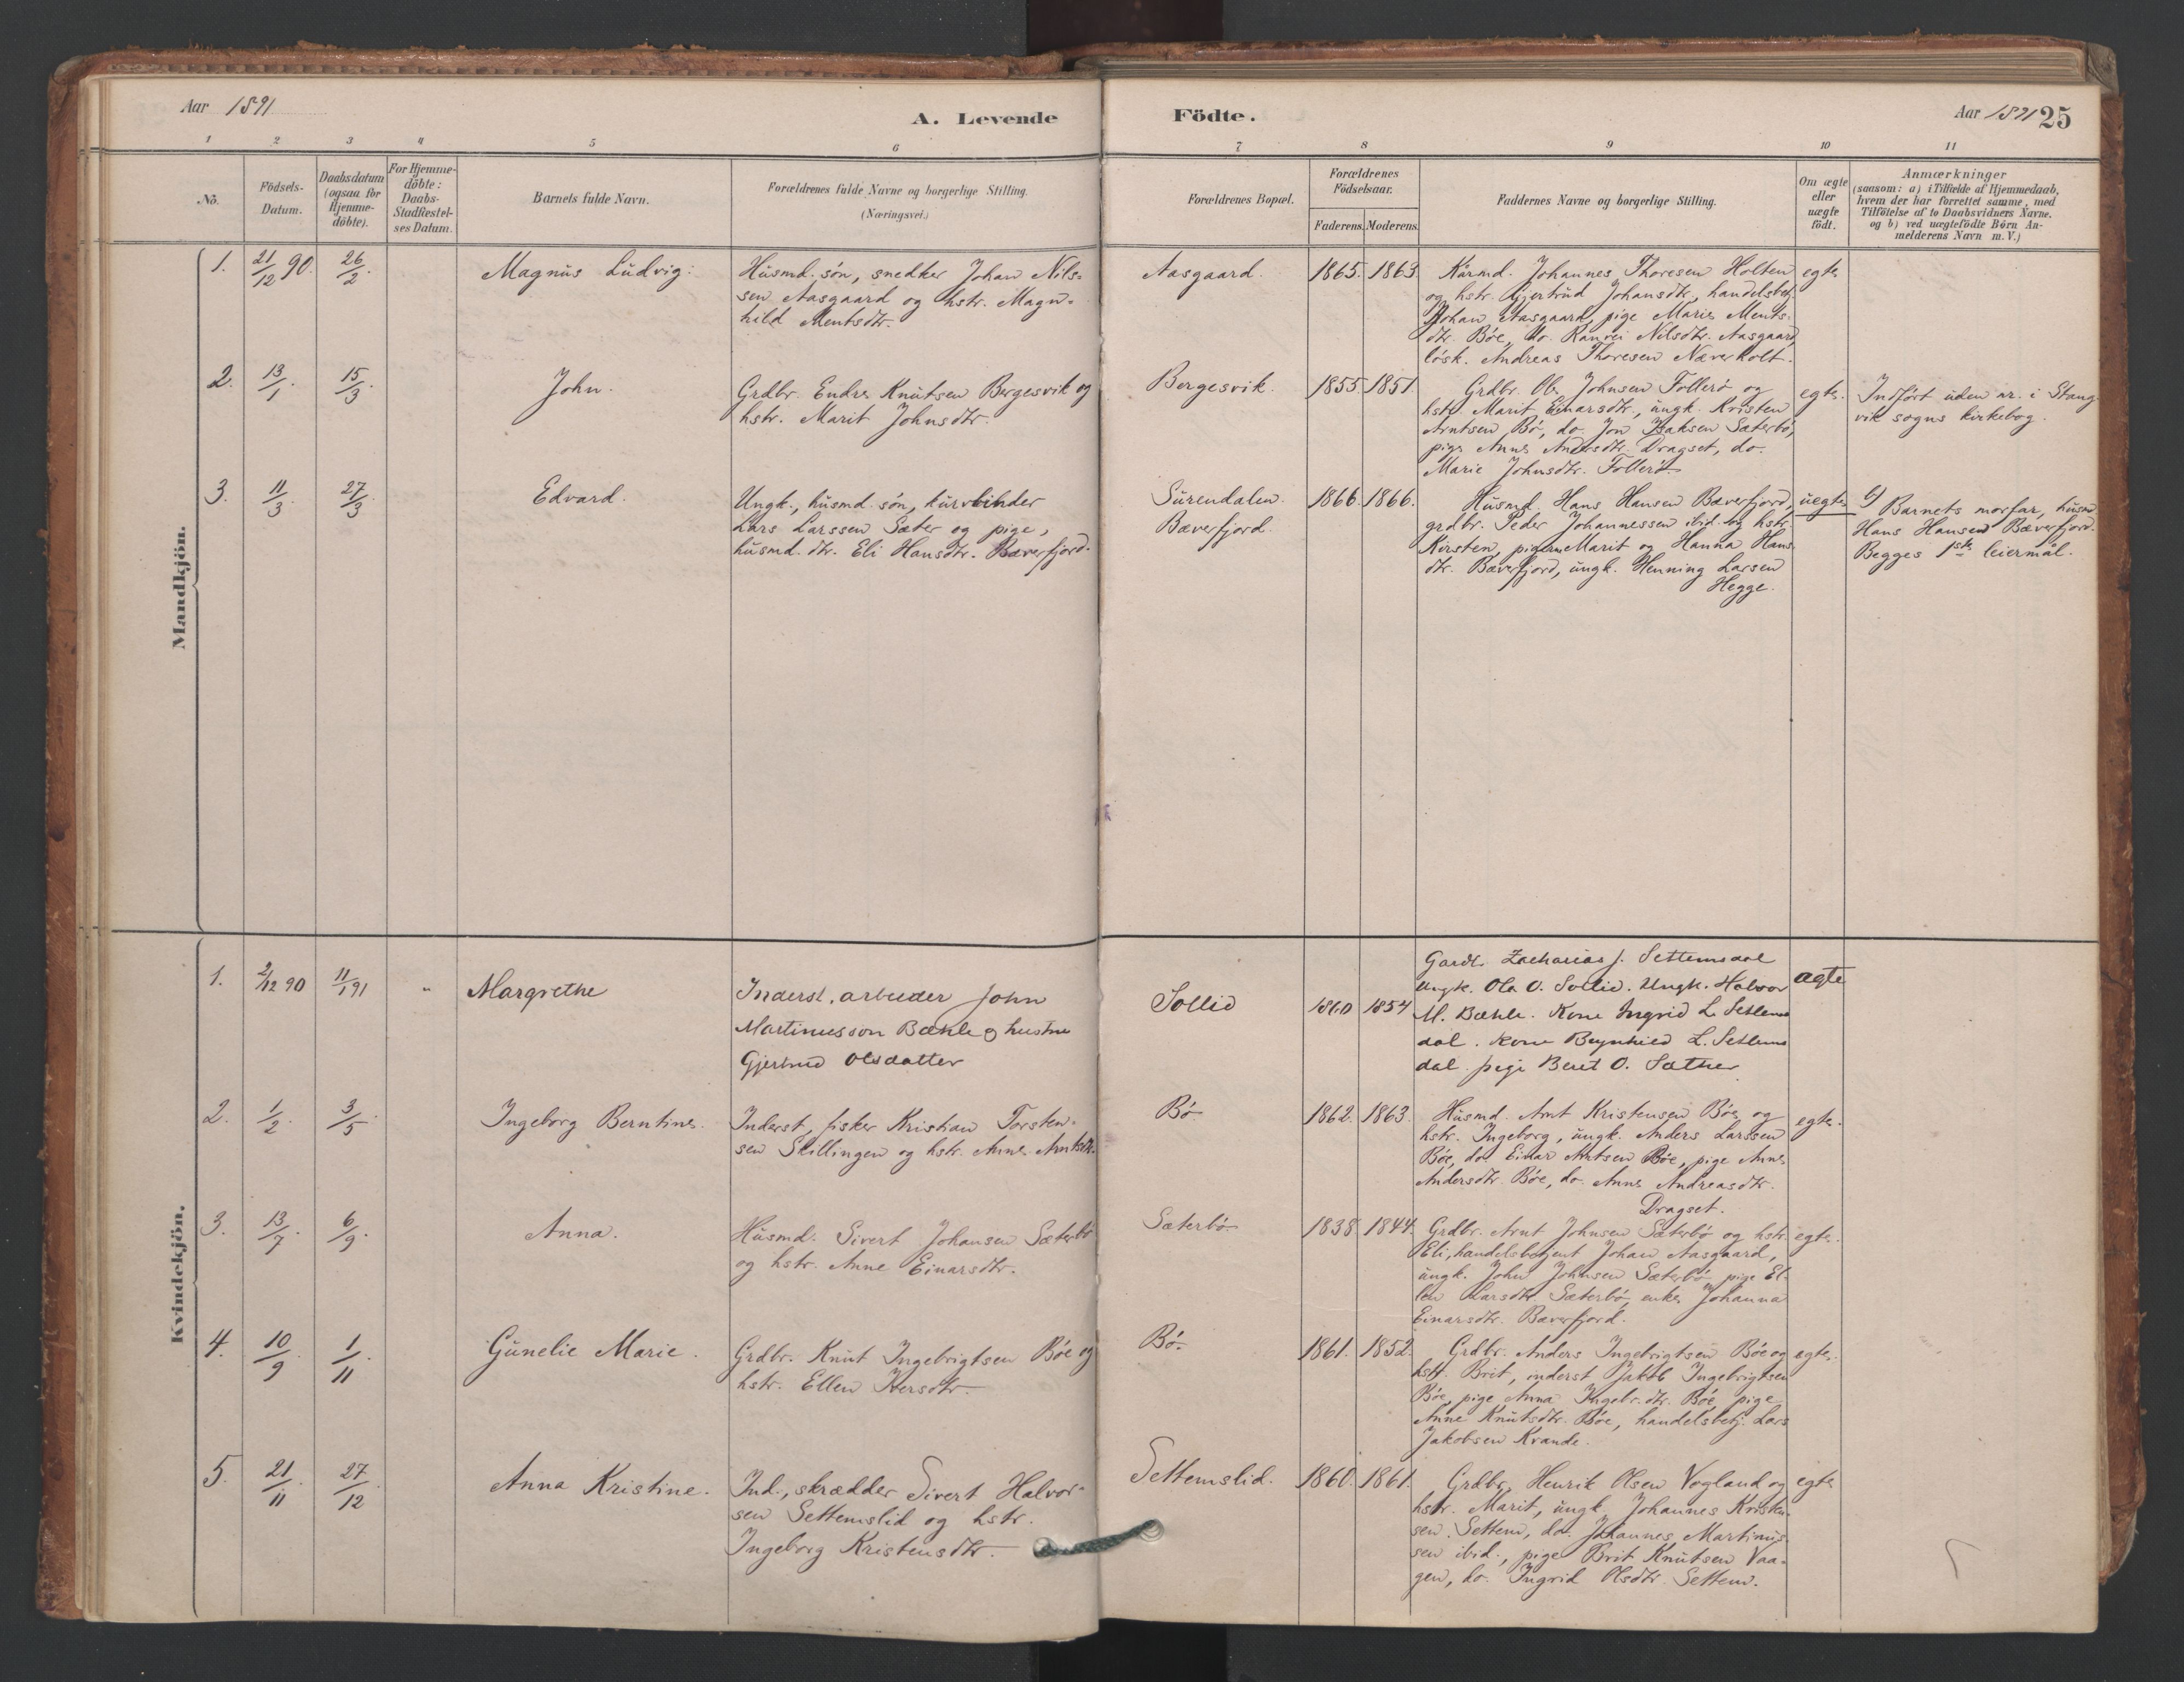 Aar 1891
A. Levende
Födte.
Aar 1891 25
1 2 3 4 5 6 7 8 9 10 11
No.
Födsels-
Datum.
Daabsdatum
(ogsaa for
Hjemme-
döbte).
For Hjemme-
döbte:
Daabs-
Stadfæstel-
ses Datum.
Barnets fulde Navn.
Forældrenes fulde Navne og borgerlige Stilling.
(Næringsvei.)
Forældrenes Bopæl.
Forældrenes
Födselsaar.
Faderens. Moderens.
Faddernes Navne og borgerlige Stilling.
Om ægte
eller
uægte
födt.
Anmærkninger
(saasom: a) i Tilfælde af Hjemmedaab,
hvem der har forrettet samme, med
Tilföielse af to Daabsvidners Navne.
og b) ved uægtefödte Börn An-
melderens Navn m.V.)
Mandkjön.
1. 21/12 90. 26/2. Magnus Ludvig.
Husmd. søn, snedker Johan Nils-
sen Aasgaard og hstr. Magn-
hild Mentsdtr.
Aasgaard. 1865. 1863.
Kårmd. Johannes Thoresen Holten
og hstr. Gjertrud Johansdtr., handelsbetj.
Johan Aasgaard, pige Marie Ments-
dtr. Bøe, do. Ranvei Nilsdtr. Aasgaard,
løsk. Andreas Thoresen Næverholt.
egte
2. 13/1. 15/3. John.
Grdbr. Endre Knutsen Bergesvik og
hstr. Marit Johnsdtr.
Bergesvik. 1855. 1851.
Grdbr. Ole Johnsen Tollerø og
hstr. Marit Einarsdtr., ungk. Kristen
Arntsen Bø, do. Jon Isaksen Sæterbø,
pige Anne Andersdtr. Dragset, do.
Marie Johnsdtr. Tollerø.
egte.
Indført uden nr. i Stang-
vik sogns kirkebog.
3. 11/3. 27/3. Edvard.
Ungk., husmd. søn, kurvbinder
Lars Larssen Sæter og pige,
husmd. dtr. Eli Hansdtr. Bæverfjord.
Surendalen.
Bæverfjord.
1866. 1866.
Husmd. Hans Hansen Bæverfjord,
grdbr. Peder Johannessen ibid. og hstr.
Kirsten, pigerne Marit og Hanna Hans-
dtr. Bæverfjord, ungk. Henning Larsen
Hegge.
uegte
b) Barnets morfar, husmd.
Hans Hansen Bæverfjord.
Begges 1ste leiermål.
Kvindekjön.
1. 2/12 90 11/1 91 " Margrethe
Inderst. arbeider John
Martinusson Bæhle og hustru
Gjertrud Olsdatter
Sollid 1860 1854
Gardb. Zacharias J. Settemsdal
Ungk. Ole O. Sollid. Ungk. Halvor
M. Bæhle. Kone Ingrid L. Settems
dal. Kone Brynhild L. Settems
dal. pige Beret O. Sæther
ægte
2. 1/2. 3/5. Ingeborg Berntine.
Inderst, fisker Kristian Torsten-
sen Skillingen og hstr. Anne Arntsdtr.
Bø 1862. 1863.
Husmd. Arnt Kristensen Bøe og
hstr. Ingeborg, ungk. Anders Larssen
Bøe, do. Einar Arntsen Bøe, pige Anne
Andersdtr. Bøe, do. Anne Andreasdtr.
Dragset.
egte.
3. 13/7. 6/9. Anna.
Husmd. Sivert Johansen Sæterbø
og hstr. Anne Einarsdtr.
Sæterbø 1838 1844.
Grdbr. Arnt Johnsen Sæterbø og hstr.
Eli, handelsbetjent Johan Aasgaard,
ungk. John Johnsen Sæterbø, pige El-
len Larsdtr. Sæterbø, enke Johanna
Einarsdtr. Bæverfjord.
egte.
4. 10/9. 1/11. Gunelie Marie.
Grdbr. Knut Ingebrigtsen Bøe og
hstr. Ellen Iversdtr.
Bø 1861. 1852.
Grdbr. Anders Ingebrigtsen Bøe og
hstr. Brit, inderst Jakob Ingebrigtsen
Bøe, pige Anna Ingebr.dtr. Bøe, pige
Anne Knutsdtr. Bøe, handelsbetj. Lars
Jakobsen Kvande.
egte.
5. 21/11 27/12. Anna Kristine.
Ind., skrædder Sivert Halvor-
sen Settemslid og hstr.
Ingeborg Kristensdtr.
Settemslid. 1860. 1861.
Grdbr. Henrik Olsen Vogland og
hstr. Marit, ungk. Johannes Kristen-
sen Settem, do. Johannes Martinus-
sen ibid., pige Brit Knutsen Vaa-
gen, do. Ingrid Olsdtr. Settem.
egte